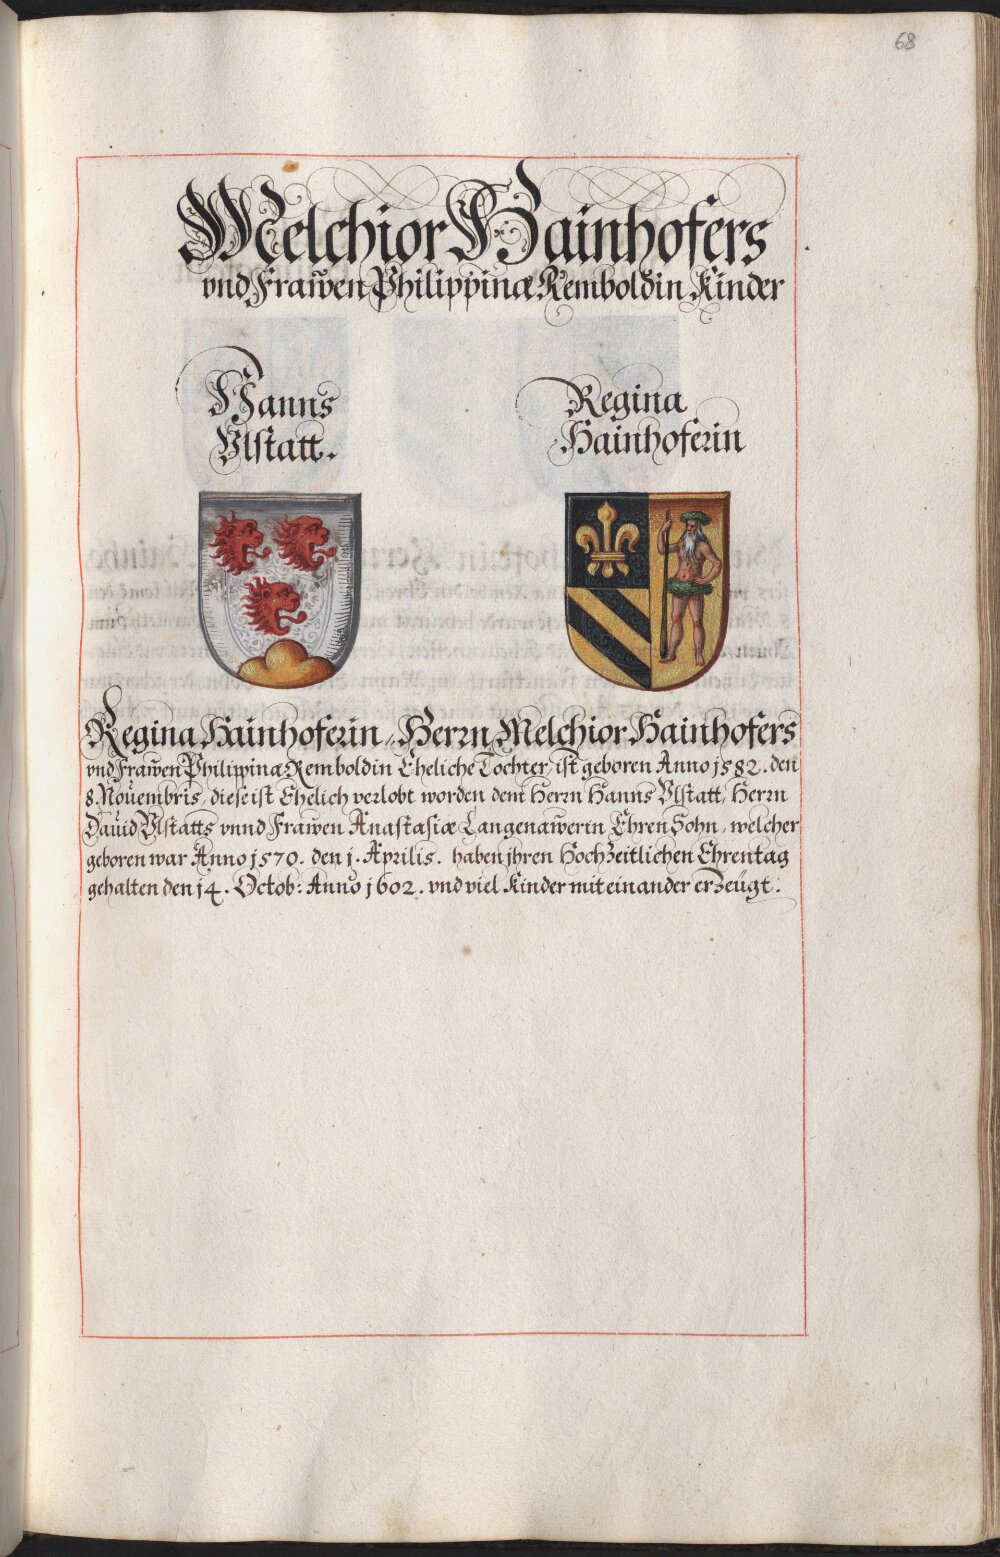 68
Melchior Hainhofers
vnd Frawen Philippinæ Remboldin Kinder
Hanns
Vlstatt.
Regina
Hainhoferin
Regina Hainhoferin, Herrn Melchior Hainhofers
vnd Frawen Philippinæ Remboldin Eheliche Tochter, ist geboren Anno 1582. den
8. Nouembris, diese ist Ehelich verlobt worden dem Herrn Hanns Vlstatt, Herrn
Dauid Vlstatts vnnd Frawen Anastasiæ Langenawerin Ehren Sohn, welcher
geboren war Anno 1570. den 1. Aprilis. haben jhren Hochzeitlichen Ehrentag
gehalten den 14. Octob: Anno 1602. vnd viel Kinder mit einander erzeügt.